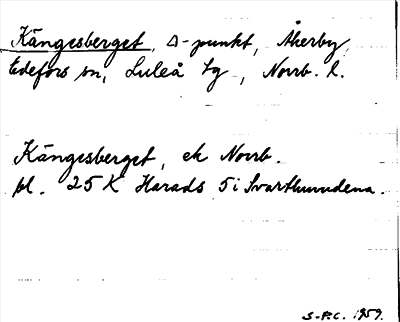 Kängesberget, Δ-punkt, Åkerby,
Edefors sn, Luleå tg, Norrb. l.
Kängesberget, ek Norrb.
bl. 25 K Harads 5 i Svartlunndena.
S-F.C. 1959.